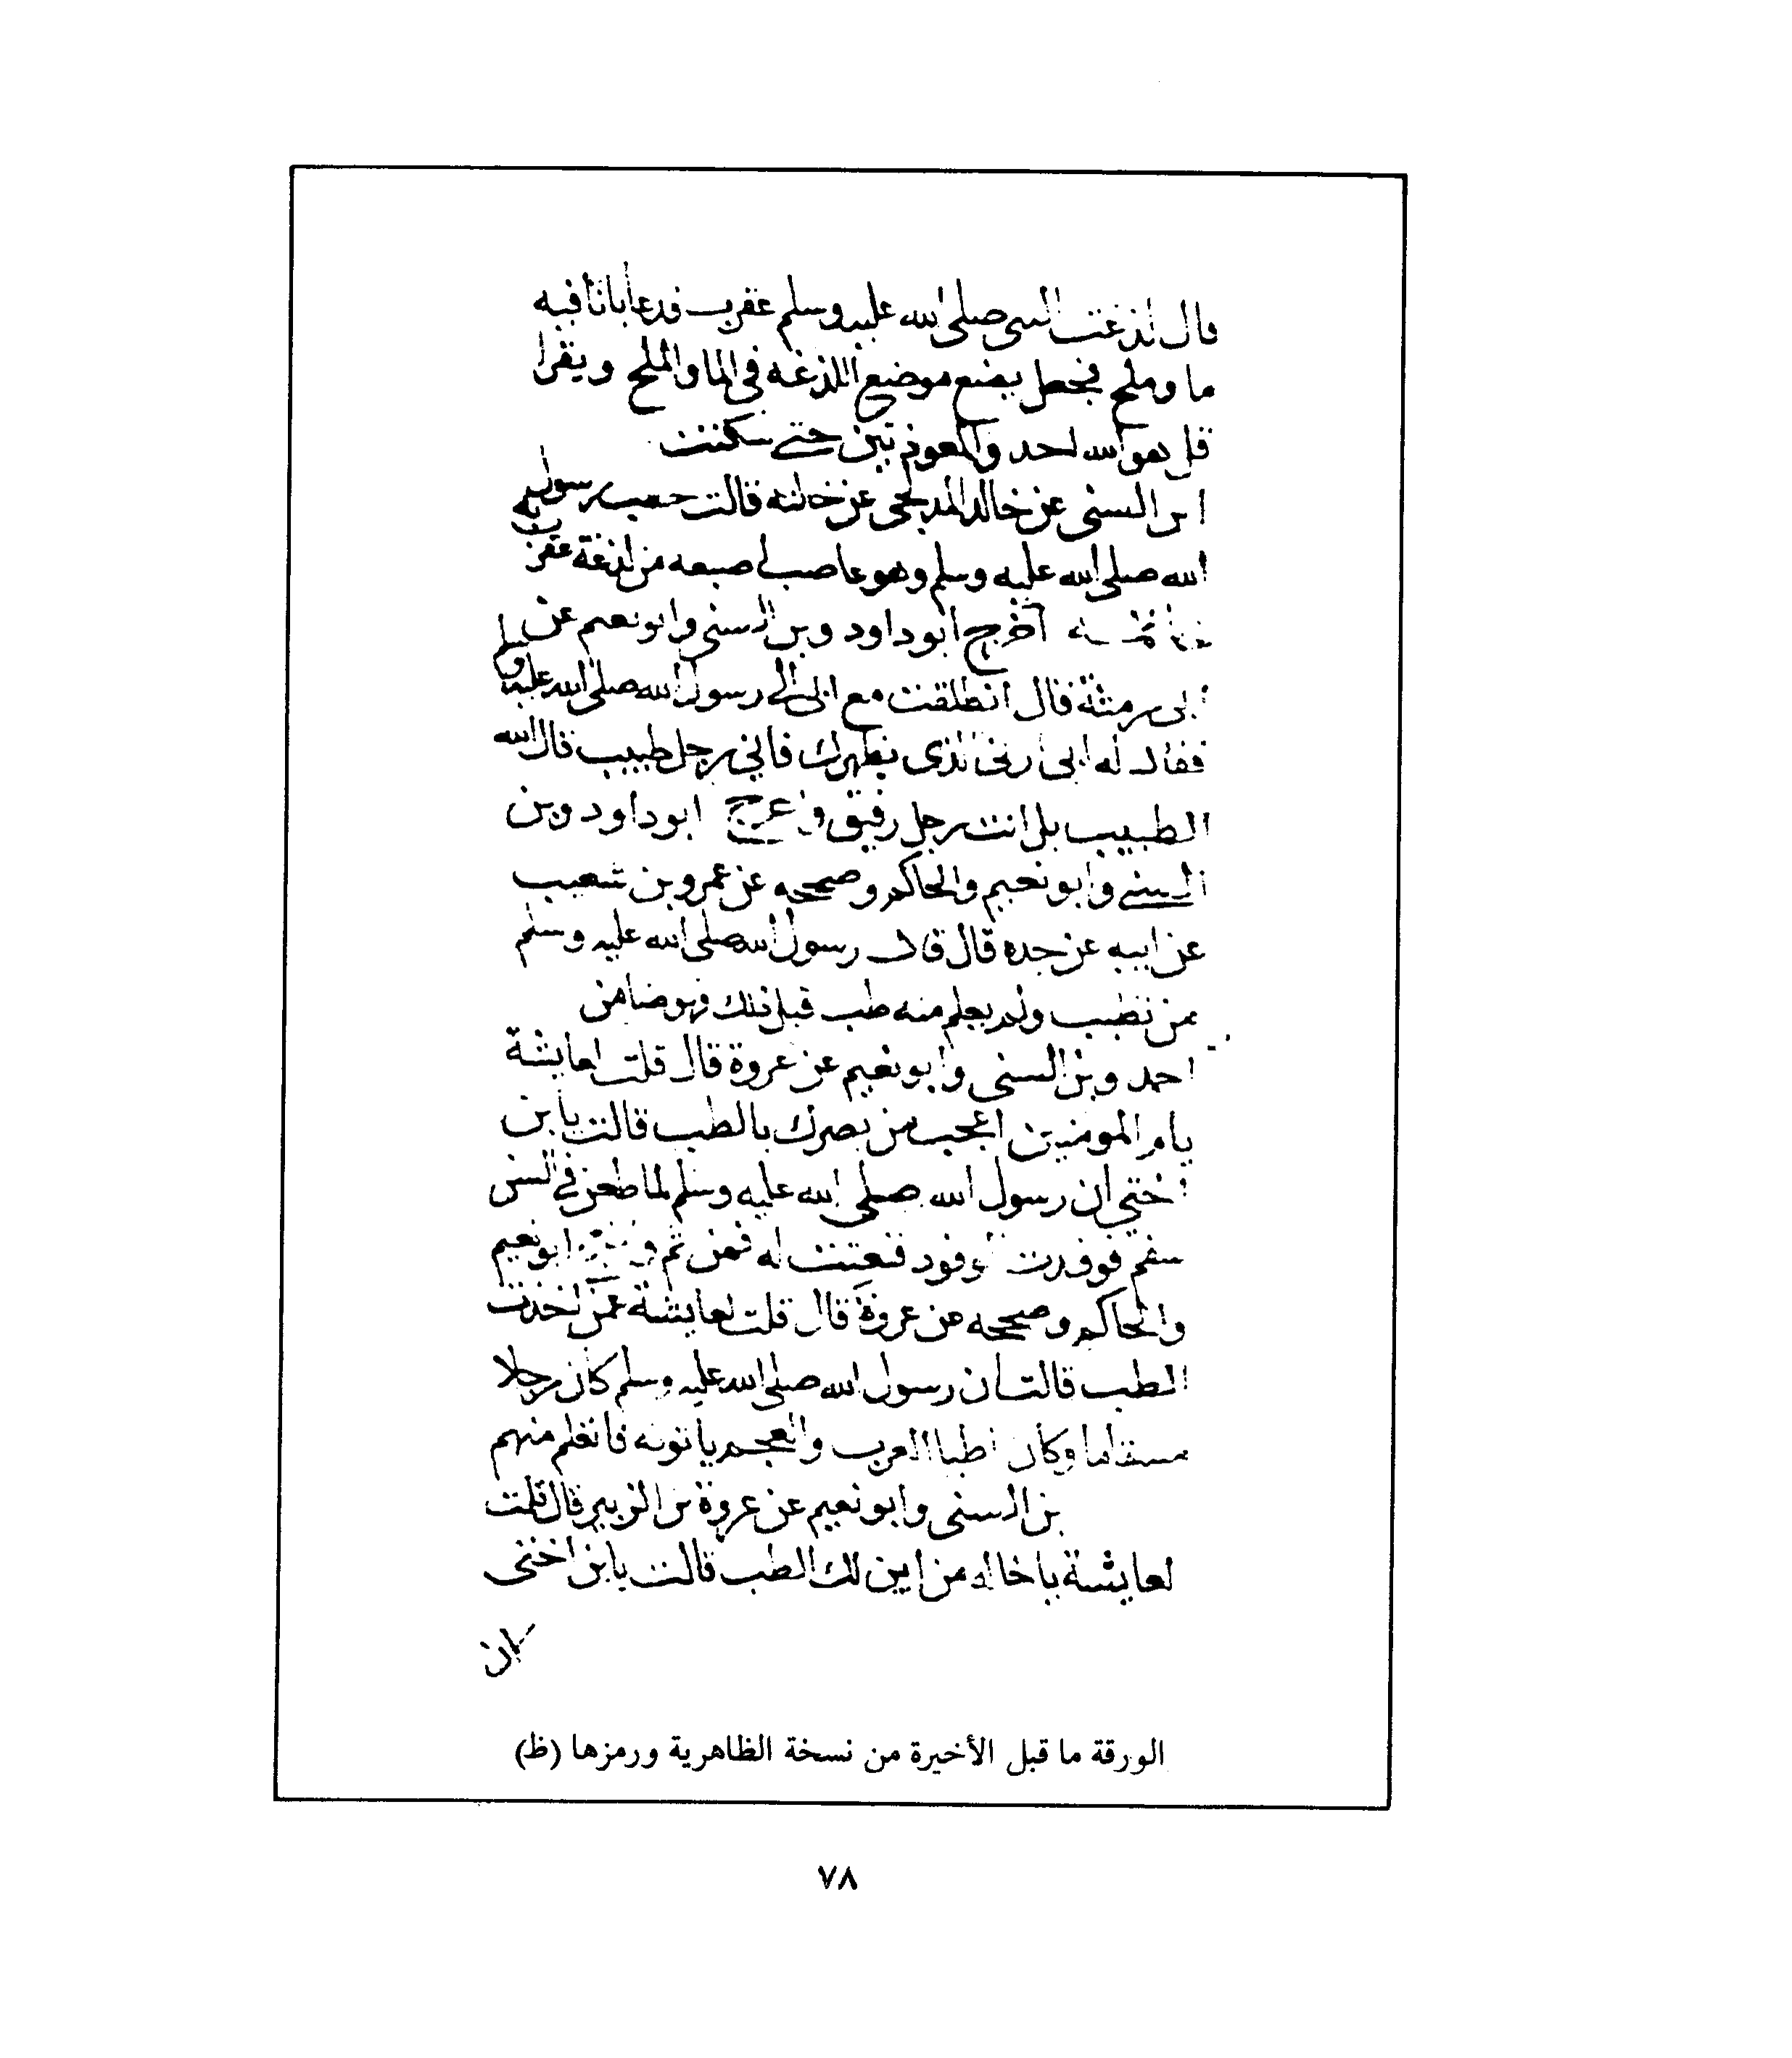 قال لذغت النبي صلى الله عليه وسلم عقرب فدعا بانا فيه
ما وملح فجعل يضع موضع اللذغه في الما والملح ويقرا
قل هو الله احد والمعوذتين حتى سكنت
ابن السني عن خالد المدلجى عن خالته قالت رسول
الله صلى الله عليه وسلم وهو عاصب اصبعه من لذغة عقرب
اخرج ابو داود وبن السني وابو نعيم عن
ابى رمثة قال انطلقت مع ابى الى رسول الله صلى الله عليه وسلم
فقال له ابى ارنى الذى بظهرك فانى رجل طبيب قال الله
الطبيب بل انت رجل رفيق ابو داود وبن
السنى وابو نعيم والحاكم وصححه عن عمرو بن شعيب
عن ابيه عن جده قال قال رسول الله صلى الله عليه وسلم
من تطبب ولم يعلم منه طب قبل ذلك فهو ضامن
احمد وبن السنى وابو نعيم عن عروة قال قلت لعايشة
يام المومنين اعجب من بصرك بالطب قالت يابن
اختي ان رسول الله صلى الله عليه وسلم لما طعن فى السن
سقم فوفدت الوفود فنعتت له فمن ثم ابو نعيم
والحاكم وصححه عن عروة قال قلت لعايشة عمن اخذت
الطب قالت ان رسول الله صلى الله عليه وسلم كان رجلا
مسقاما وكان اطبا العرب والعجم ياتونه فاتعلم منهم
بن السنى وابو نعيم عن عروة بن الزبير قال قلت
لعايشة يا خاله من اين لك الطب قالت يابن اختى
كان
الورقة ما قبل الأخيرة من نسخة الظاهرية ورمزها (ظ)
٧٨